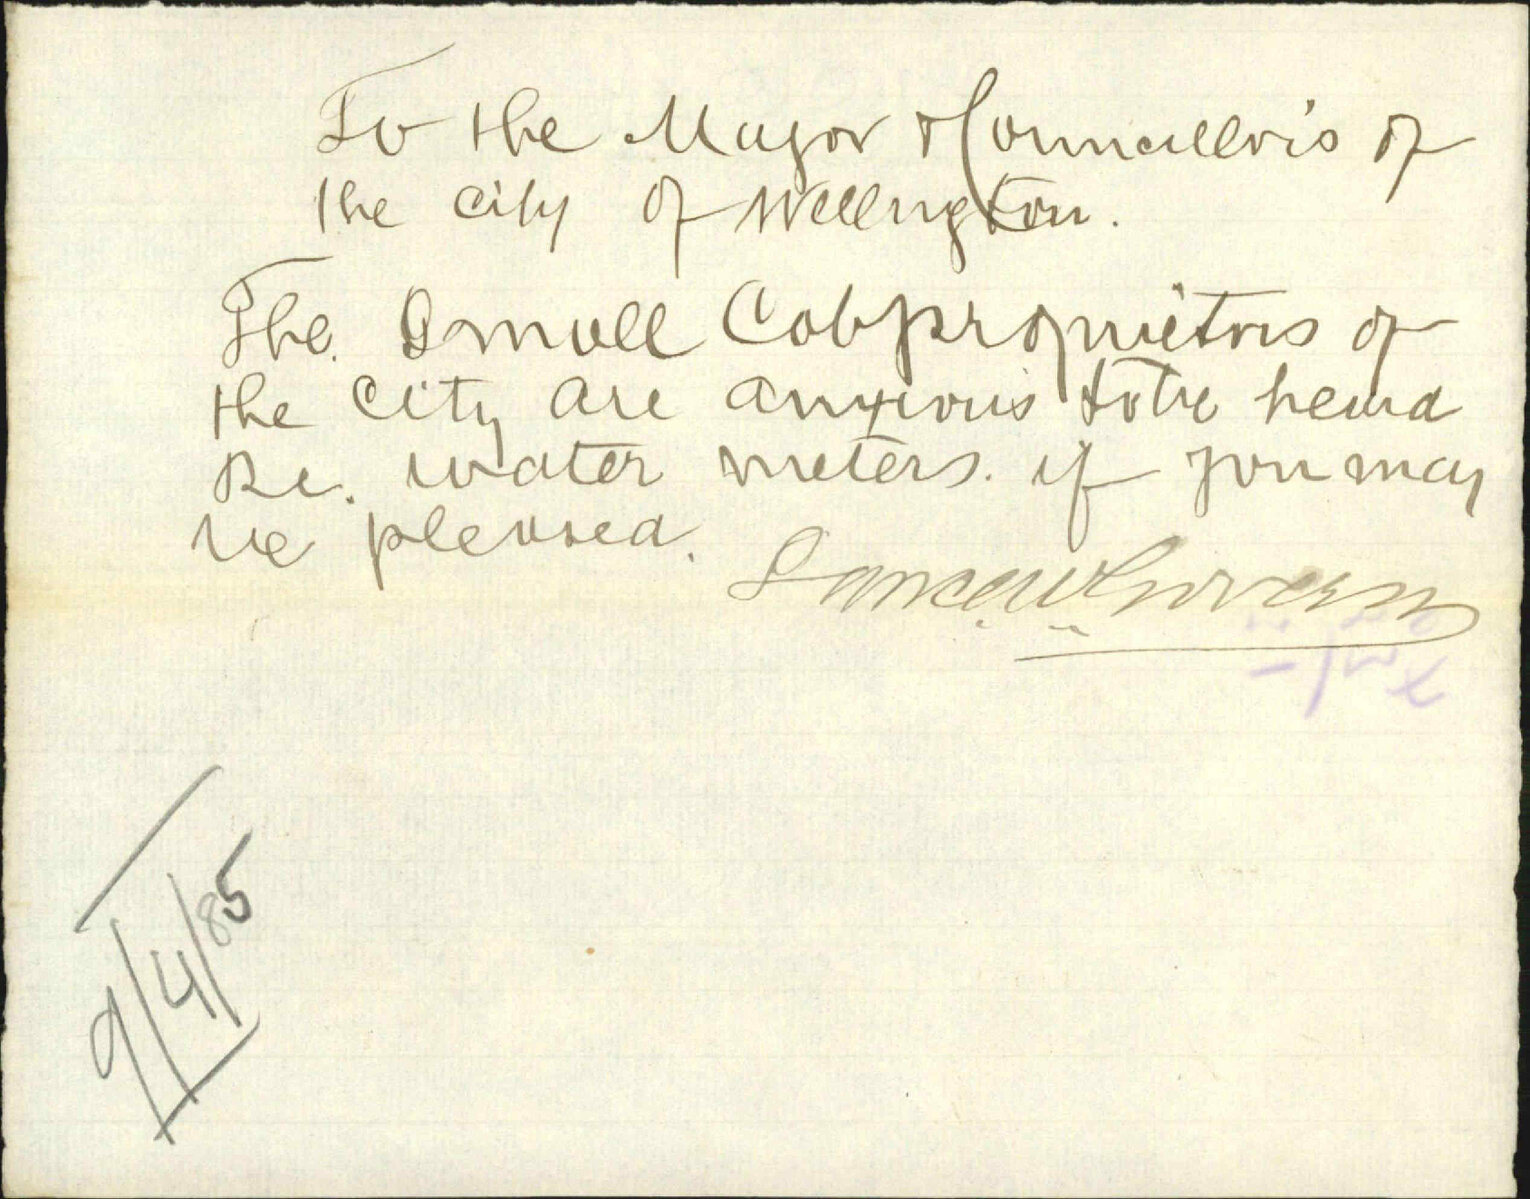 To the Mayor & Councillors of
the City of Wellington.
The Small Cab proprietors of
the City are anxious to be heard
Re. water meters. if you may
be pleased.
9/4/85